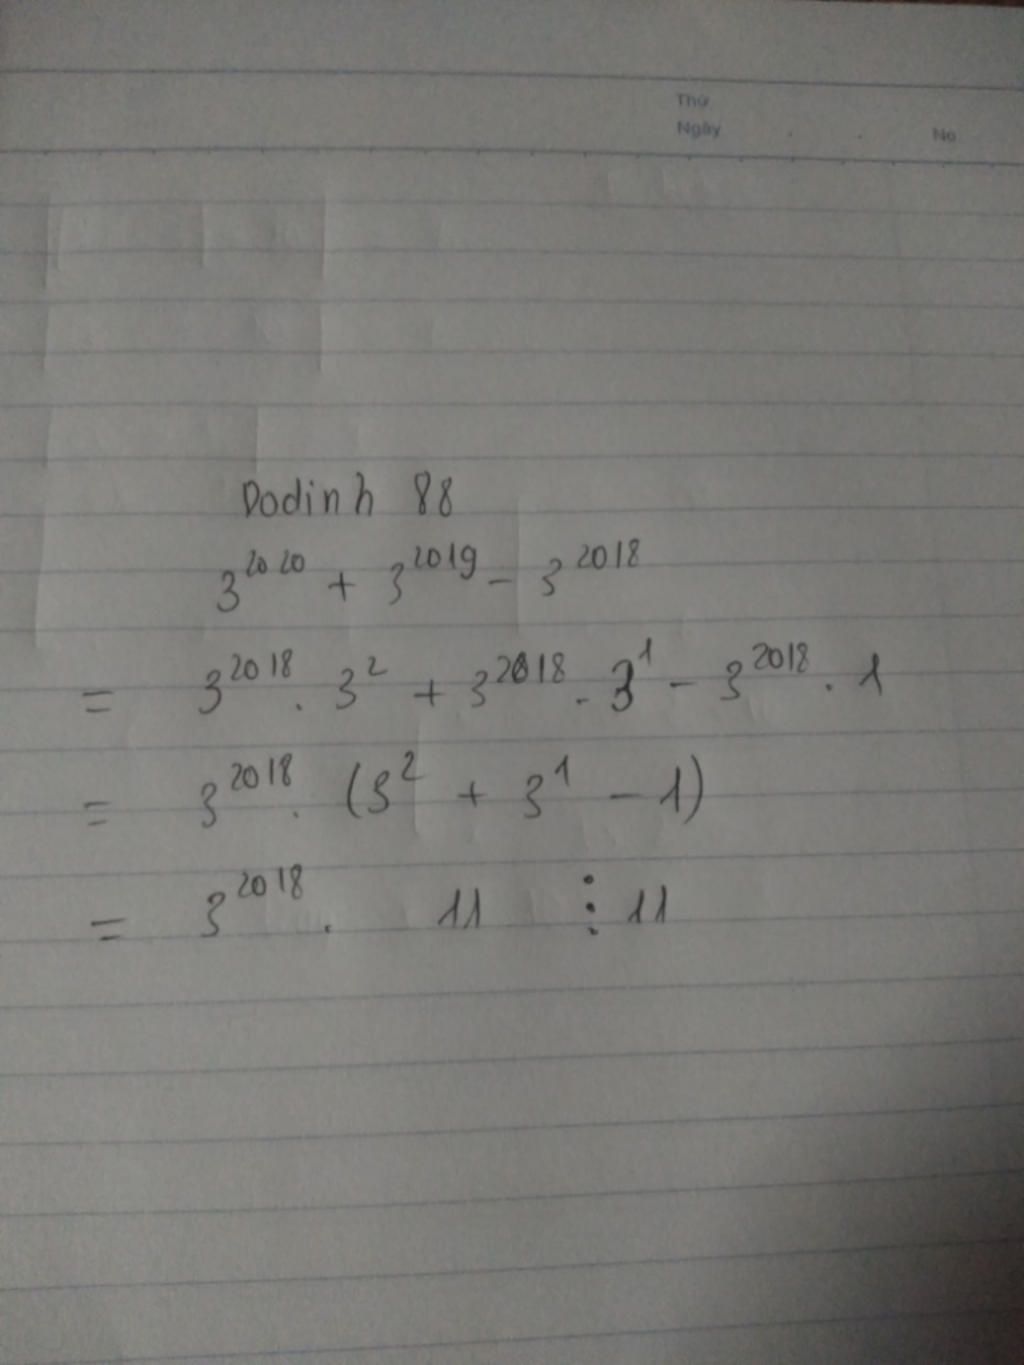 Thứ
Ngày . . No
Dodinh 88
3^2020 + 3^2019 - 3^2018
= 3^2018 . 3^2 + 3^2018 . 3^1 - 3^2018 . 1
= 3^2018 . (3^2 + 3^1 - 1)
= 3^2018 . 11 ⋮ 11